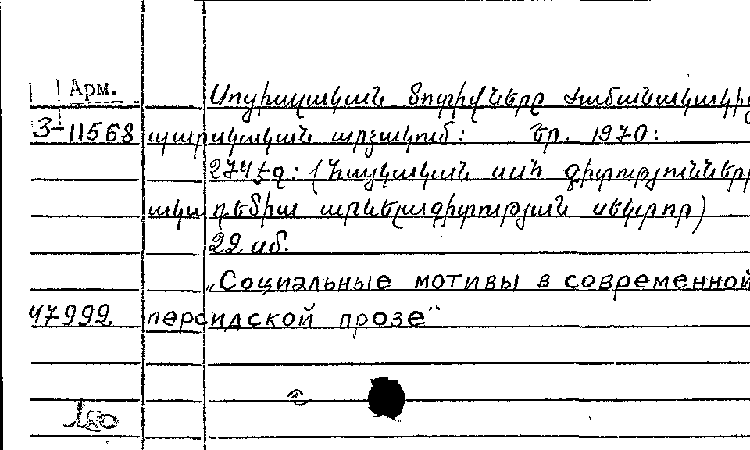 Арм.
Սոցիալական մոտիվները ժամանակակից
3-11568 պարսկական արձակում: Եր. 1970:
274 էջ: (Հայկական ՍՍՀ գիտությունների
ակադեմիա արևելագիտության սեկտոր)
22 սմ.
„Социальные мотивы в современной
47999 персидской прозе“